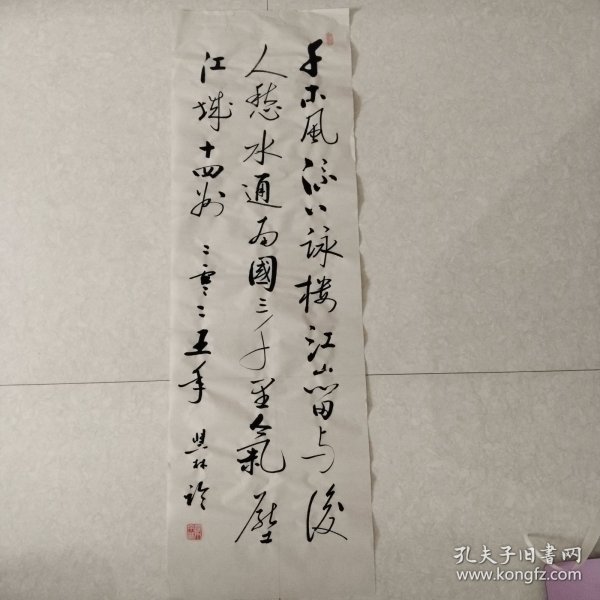 千古風流八詠樓江山留与後
人愁水通南國三千里氣壓
江城十四州 二零二五年
林
孔夫子旧书网
www.kongfz.com